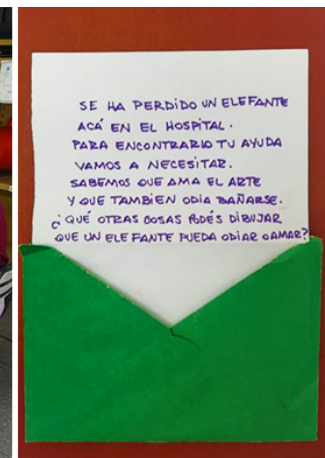 SE HA PERDIDO UN ELEFANTE
ACÁ EN EL HOSPITAL.
PARA ENCONTRARLO TU AYUDA
VAMOS A NECESITAR.
SABEMOS QUE AMA EL ARTE
Y QUE TAMBIEN ODIA BAÑARSE.
¿QUÉ OTRAS COSAS PODÉS DIBUJAR
QUE UN ELEFANTE PUEDA ODIAR O AMAR?